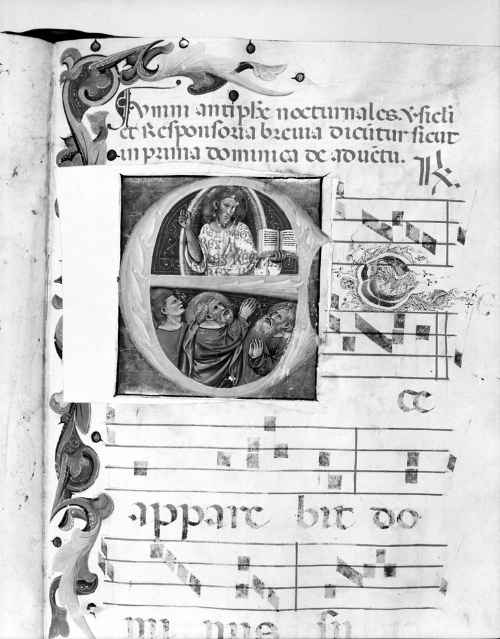 Ymni antiphe nocturnales. Vsicli
et Responsoria breuia dicūtur sicut
in prima dominica de aduētu.
R.
E cc
appare bit do